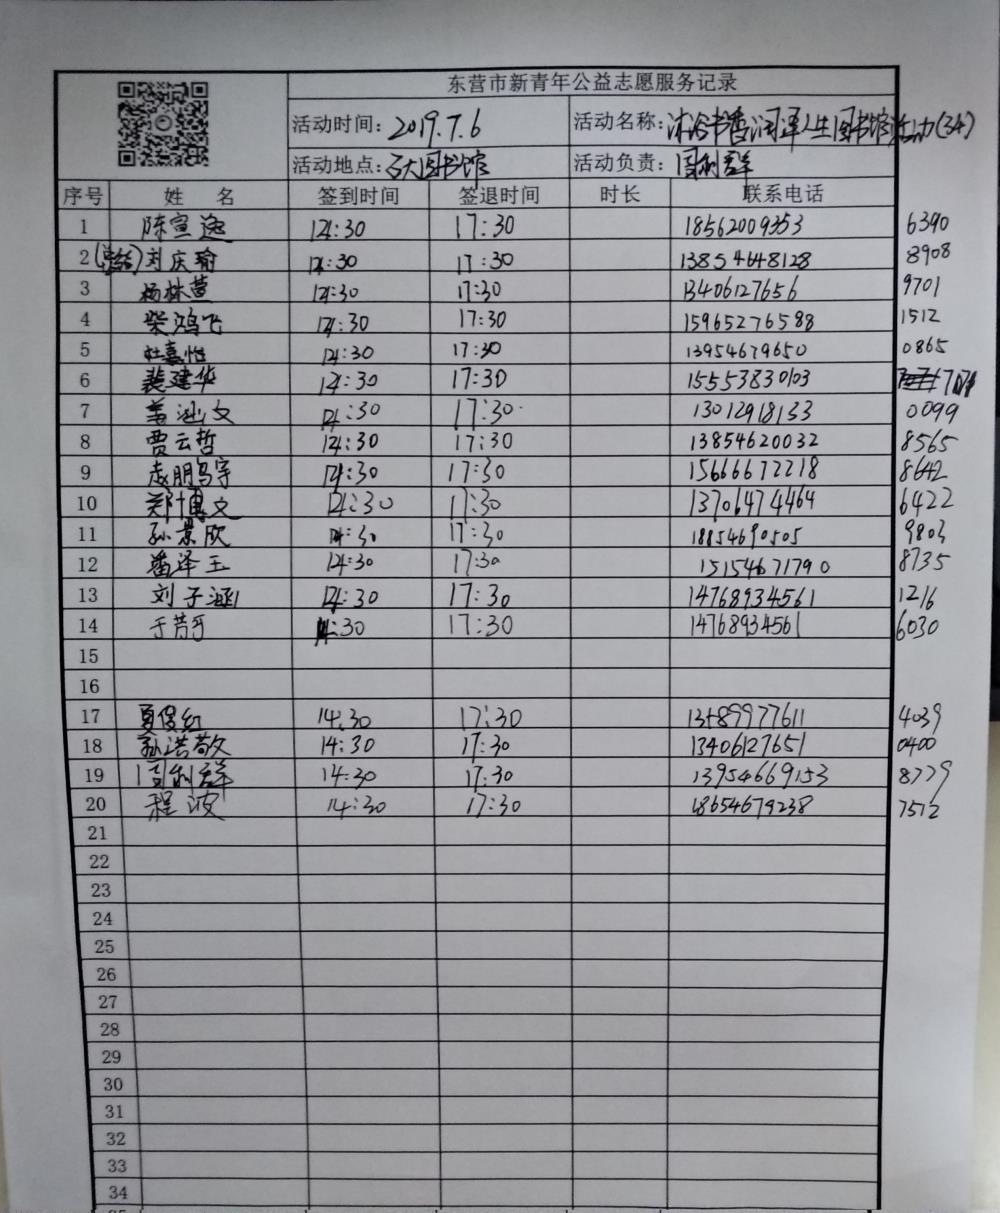 东营市新青年公益志愿服务记录
活动时间: 2019.7.6 活动名称: 沐浴书香润泽人生图书馆活动(34)
活动地点: 石大图书馆 活动负责: 周利群
序号 姓 名 签到时间 签退时间 时长 联系电话
1 陈宣逸 14:30 17:30 18562009353 6390
2 (总结)刘庆瑜 14:30 17:30 13854648128 8908
3 杨林萱 14:30 17:30 13406127656 9701
4 柴鸿飞 14:30 17:30 15965276588 1512
5 杜嘉怡 14:30 17:30 13954679650 0865
6 裴建华 14:30 17:30 15553830103
7 盖涵文 14:30 17:30 13012918133 0099
8 贾云哲 14:30 17:30 13854620032 8565
9 赵鹏宇 14:30 17:30 15666672218 8642
10 郑博文 14:30 17:30 13706474464 6422
11 孙景欣 14:30 17:30 18854690505 9803
12 潘泽玉 14:30 17:30 15154671790 8735
13 刘子涵 14:30 17:30 14768934561 1216
14 于 14:30 17:30 14768934561 6030
15
16
17 夏俊红 14:30 17:30 13589977611 4039
18 孙洪敬 14:30 17:30 13406127651 0400
19 周利群 14:30 17:30 13954669153 8779
20 程波 14:30 17:30 18654679238 7512
21
22
23
24
25
26
27
28
29
30
31
32
33
34